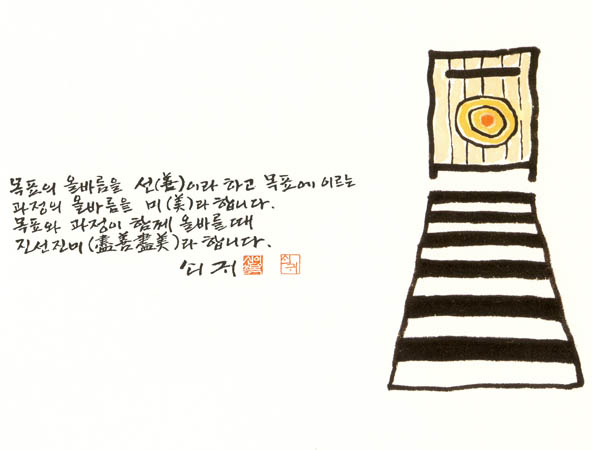 목표의 올바름을 선(善)이라 하고 목표에 이르는
과정의 올바름을 미(美)라 합니다.
목표와 과정이 함께 올바를 때
진선진미(盡善盡美)라 합니다.
쇠귀